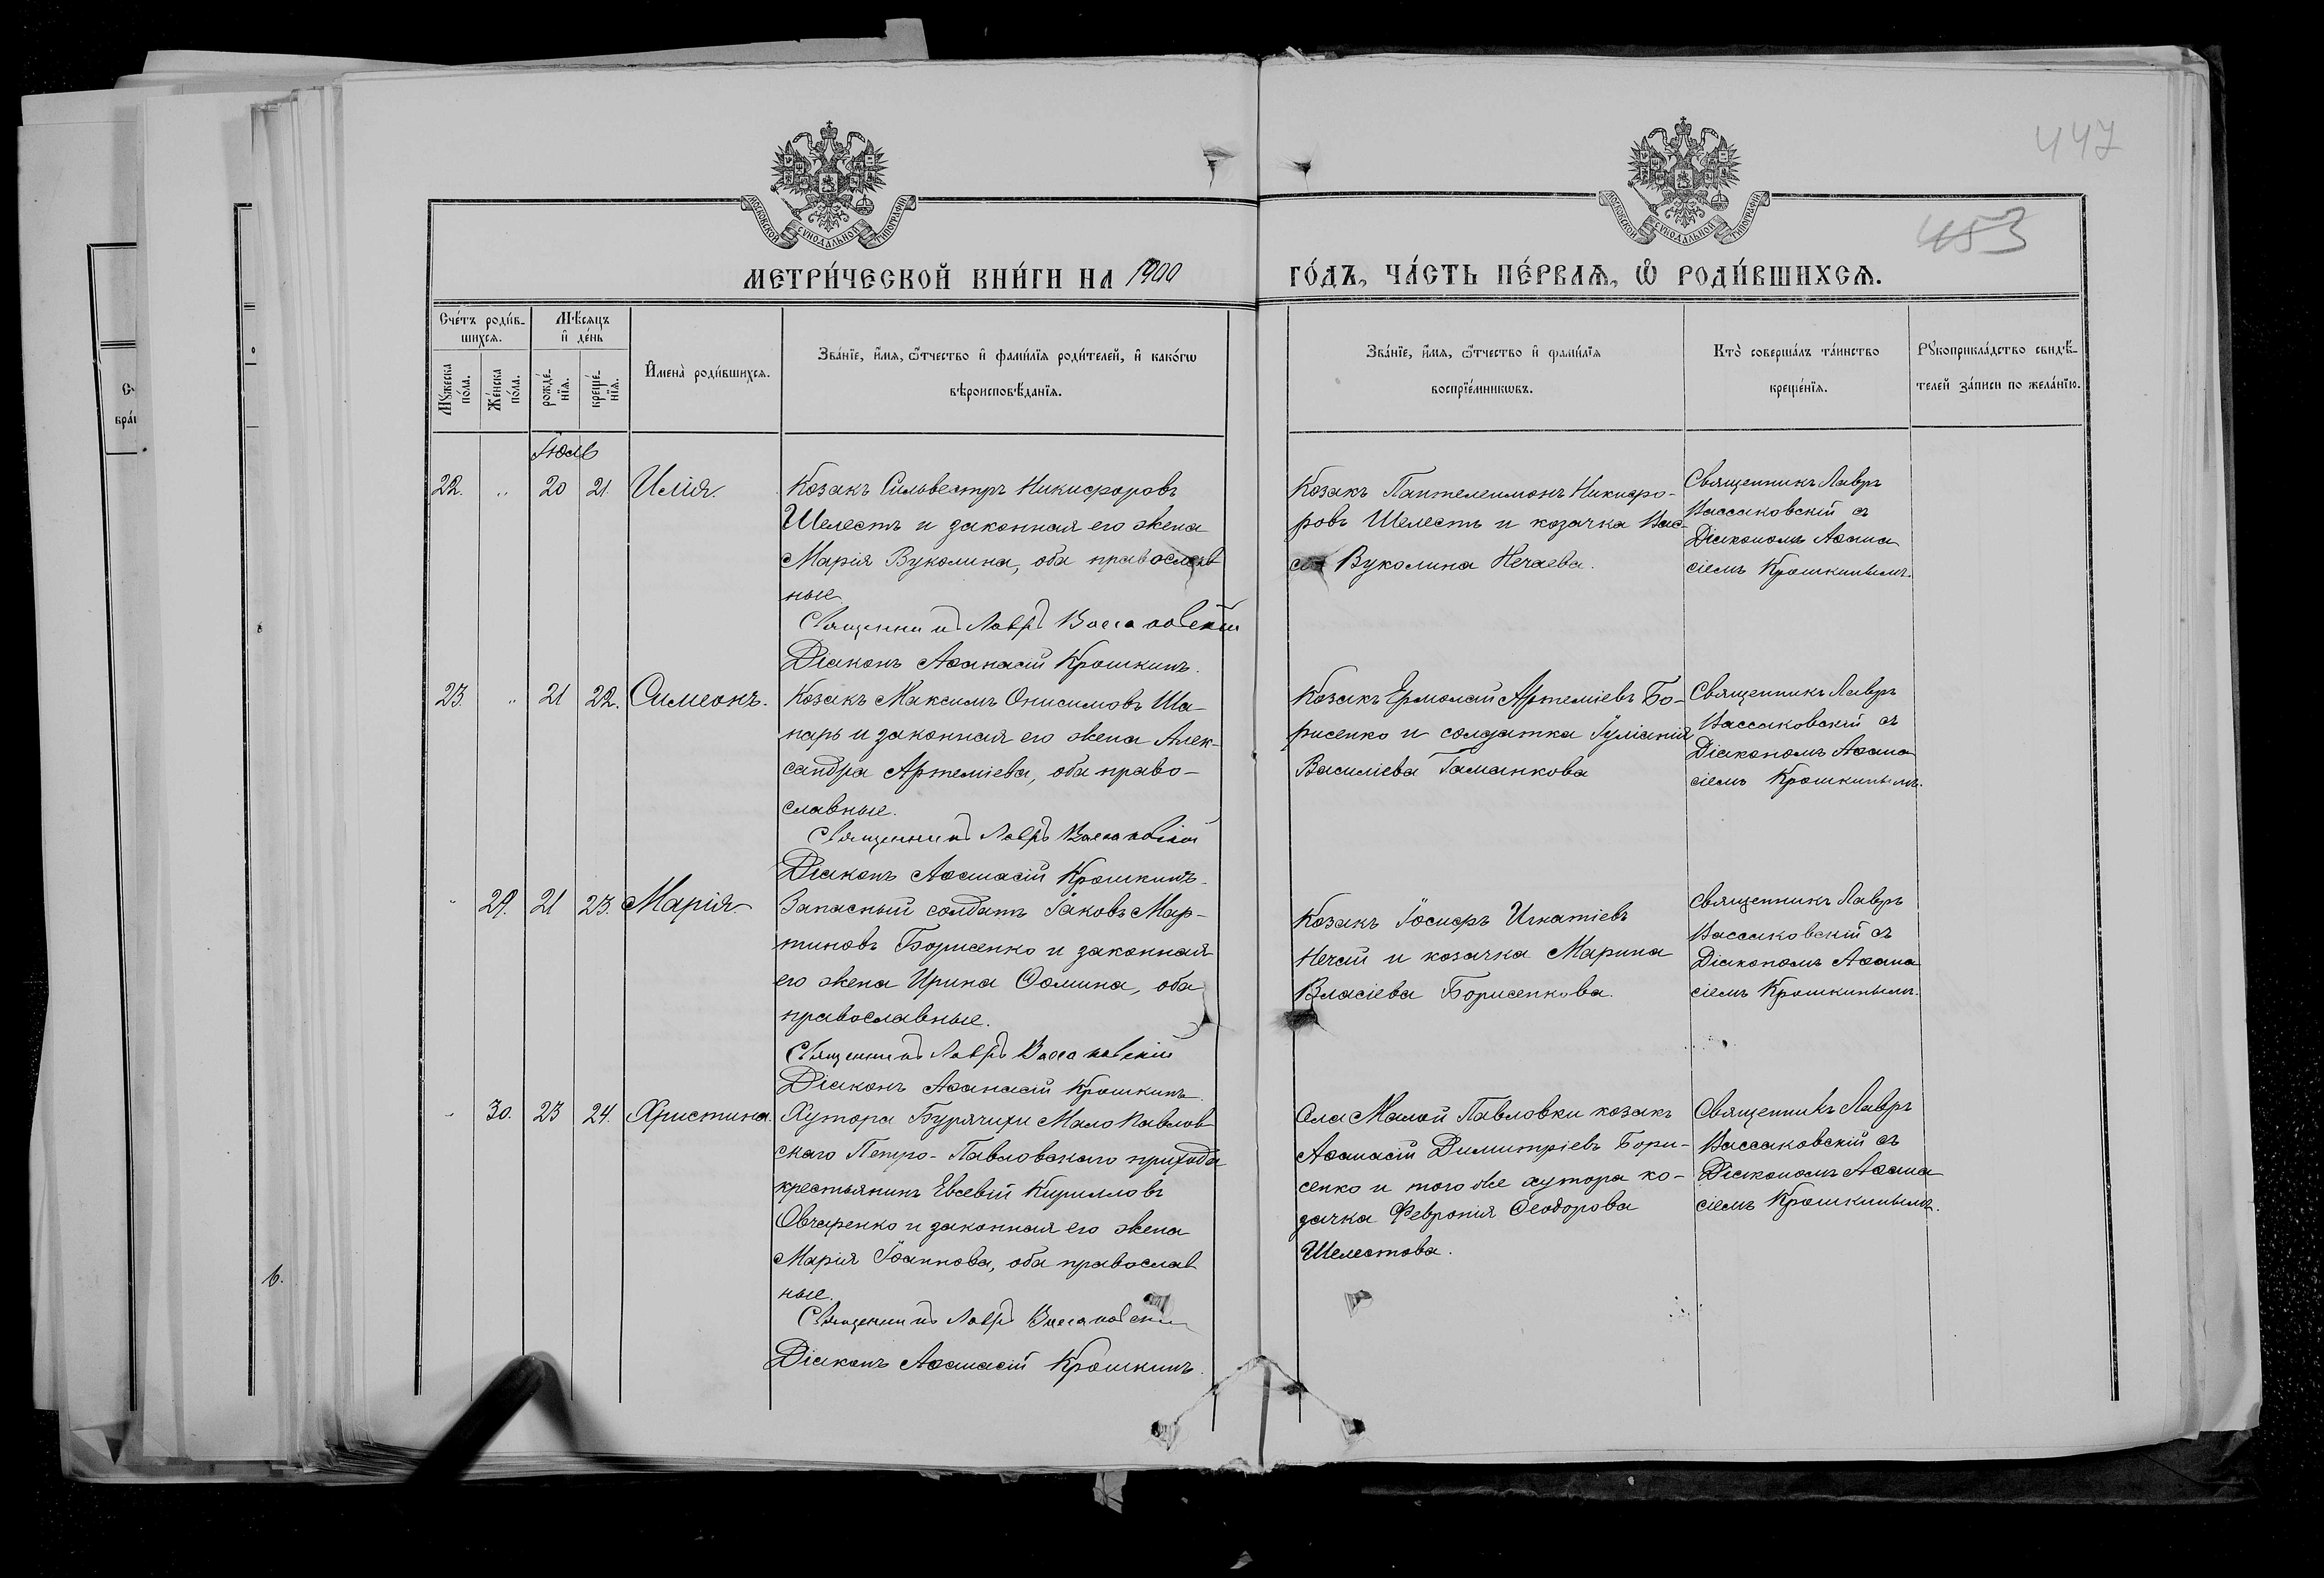 447
453
МОСКОВСКОЙ СѴНОДАЛЬНОЙ ТИПОГРАФИИ
МОСКОВСКОЙ СѴНОДАЛЬНОЙ ТИПОГРАФИИ
МЕТРИ́ЧЕСКОЙ КНИ́ГИ НА 1900
ГО́ДЪ, ЧА́СТЬ ПЕ́РВАѦ, Ѽ РОДИ́ВШИХСѦ.
Сче́тъ роди́в-
шихсѧ.
Мꙋ́жеска по́ла.
Же́нска по́ла.
Мѣ́сѧцъ и҆ де́нь
рожде́-нїѧ.
креще́-нїѧ.
И҆мена̀ роди́вшихсѧ.
Зва́нїе, и҆́мѧ, ѻ҆́тчество и҆ фами́лїѧ роди́телей, и҆ како́гѡ
вѣроисповѣ́данїѧ.
Зва́нїе, и҆́мѧ, ѻ҆́тчество и҆ фами́лїѧ
воспрїе́мникѡвъ.
Кто̀ соверша́лъ та́инство
креще́нїѧ.
Рꙋкоприкла́дство свидѣ́-
телей за́писи по жела́нїю.
Іюль
22. " 20 21. Илія.
Козакъ Сильвестръ Никифоровъ
Шелестъ и законная его жена
Марія Вуколина, оба православ
ные.
Священникъ Лавръ Вассаковскій
Діаконъ Аѳанасій Крошкинъ.
Козакъ Пантелеимонъ Никифо-
ровъ Шелестъ и козачка Вас-
са Вуколина Нечаева.
Священникъ Лавръ
Вассаковскій съ
Діакономъ Аѳана
сіемъ Крошкинымъ.
23. " 21 22. Симеонъ.
Козакъ Максимъ Онисимовъ Ша-
парь и законная его жена Алек-
сандра Артеміева, оба право-
славные.
Священникъ Лавръ Вассаковскій
Діаконъ Аѳанасій Крошкинъ.
Козакъ Ермолай Артеміевъ Бо-
рисенко и солдатка Іуліанія
Василіева Таманкова
Священникъ Лавръ
Вассаковскій съ
Діакономъ Аѳана
сіемъ Крошкинымъ.
" 29. 21 23. Марія.
Запасный солдатъ Іаковъ Мар-
тиновъ Борисенко и законная
его жена Ирина Ѳомина, оба
православные.
Священникъ Лавръ Вассаковскій
Діаконъ Аѳанасій Крошкинъ.
Козакъ Іосифъ Игнатіевъ
Нечай и козачка Марина
Власіева Борисенкова.
Священникъ Лавръ
Вассаковскій съ
Діакономъ Аѳана
сіемъ Крошкинымъ.
" 30. 23 24. Христина.
Хутора Бурячихи Мало Павлов
скаго Петро-Павловскаго прихода
крестьянинъ Евсевій Кирилловъ
Овчаренко и законная его жена
Марія Іоаннова, оба православ
ные.
Священникъ Лавръ Вассаковскій
Діаконъ Аѳанасій Крошкинъ.
Села Малой Павловки козакъ
Аѳанасій Димитріевъ Бори-
сенко и того же хутора ко-
зачка Февронія Ѳеодорова
Шелестова.
Священникъ Лавръ
Вассаковскій съ
Діакономъ Аѳана
сіемъ Крошкинымъ.